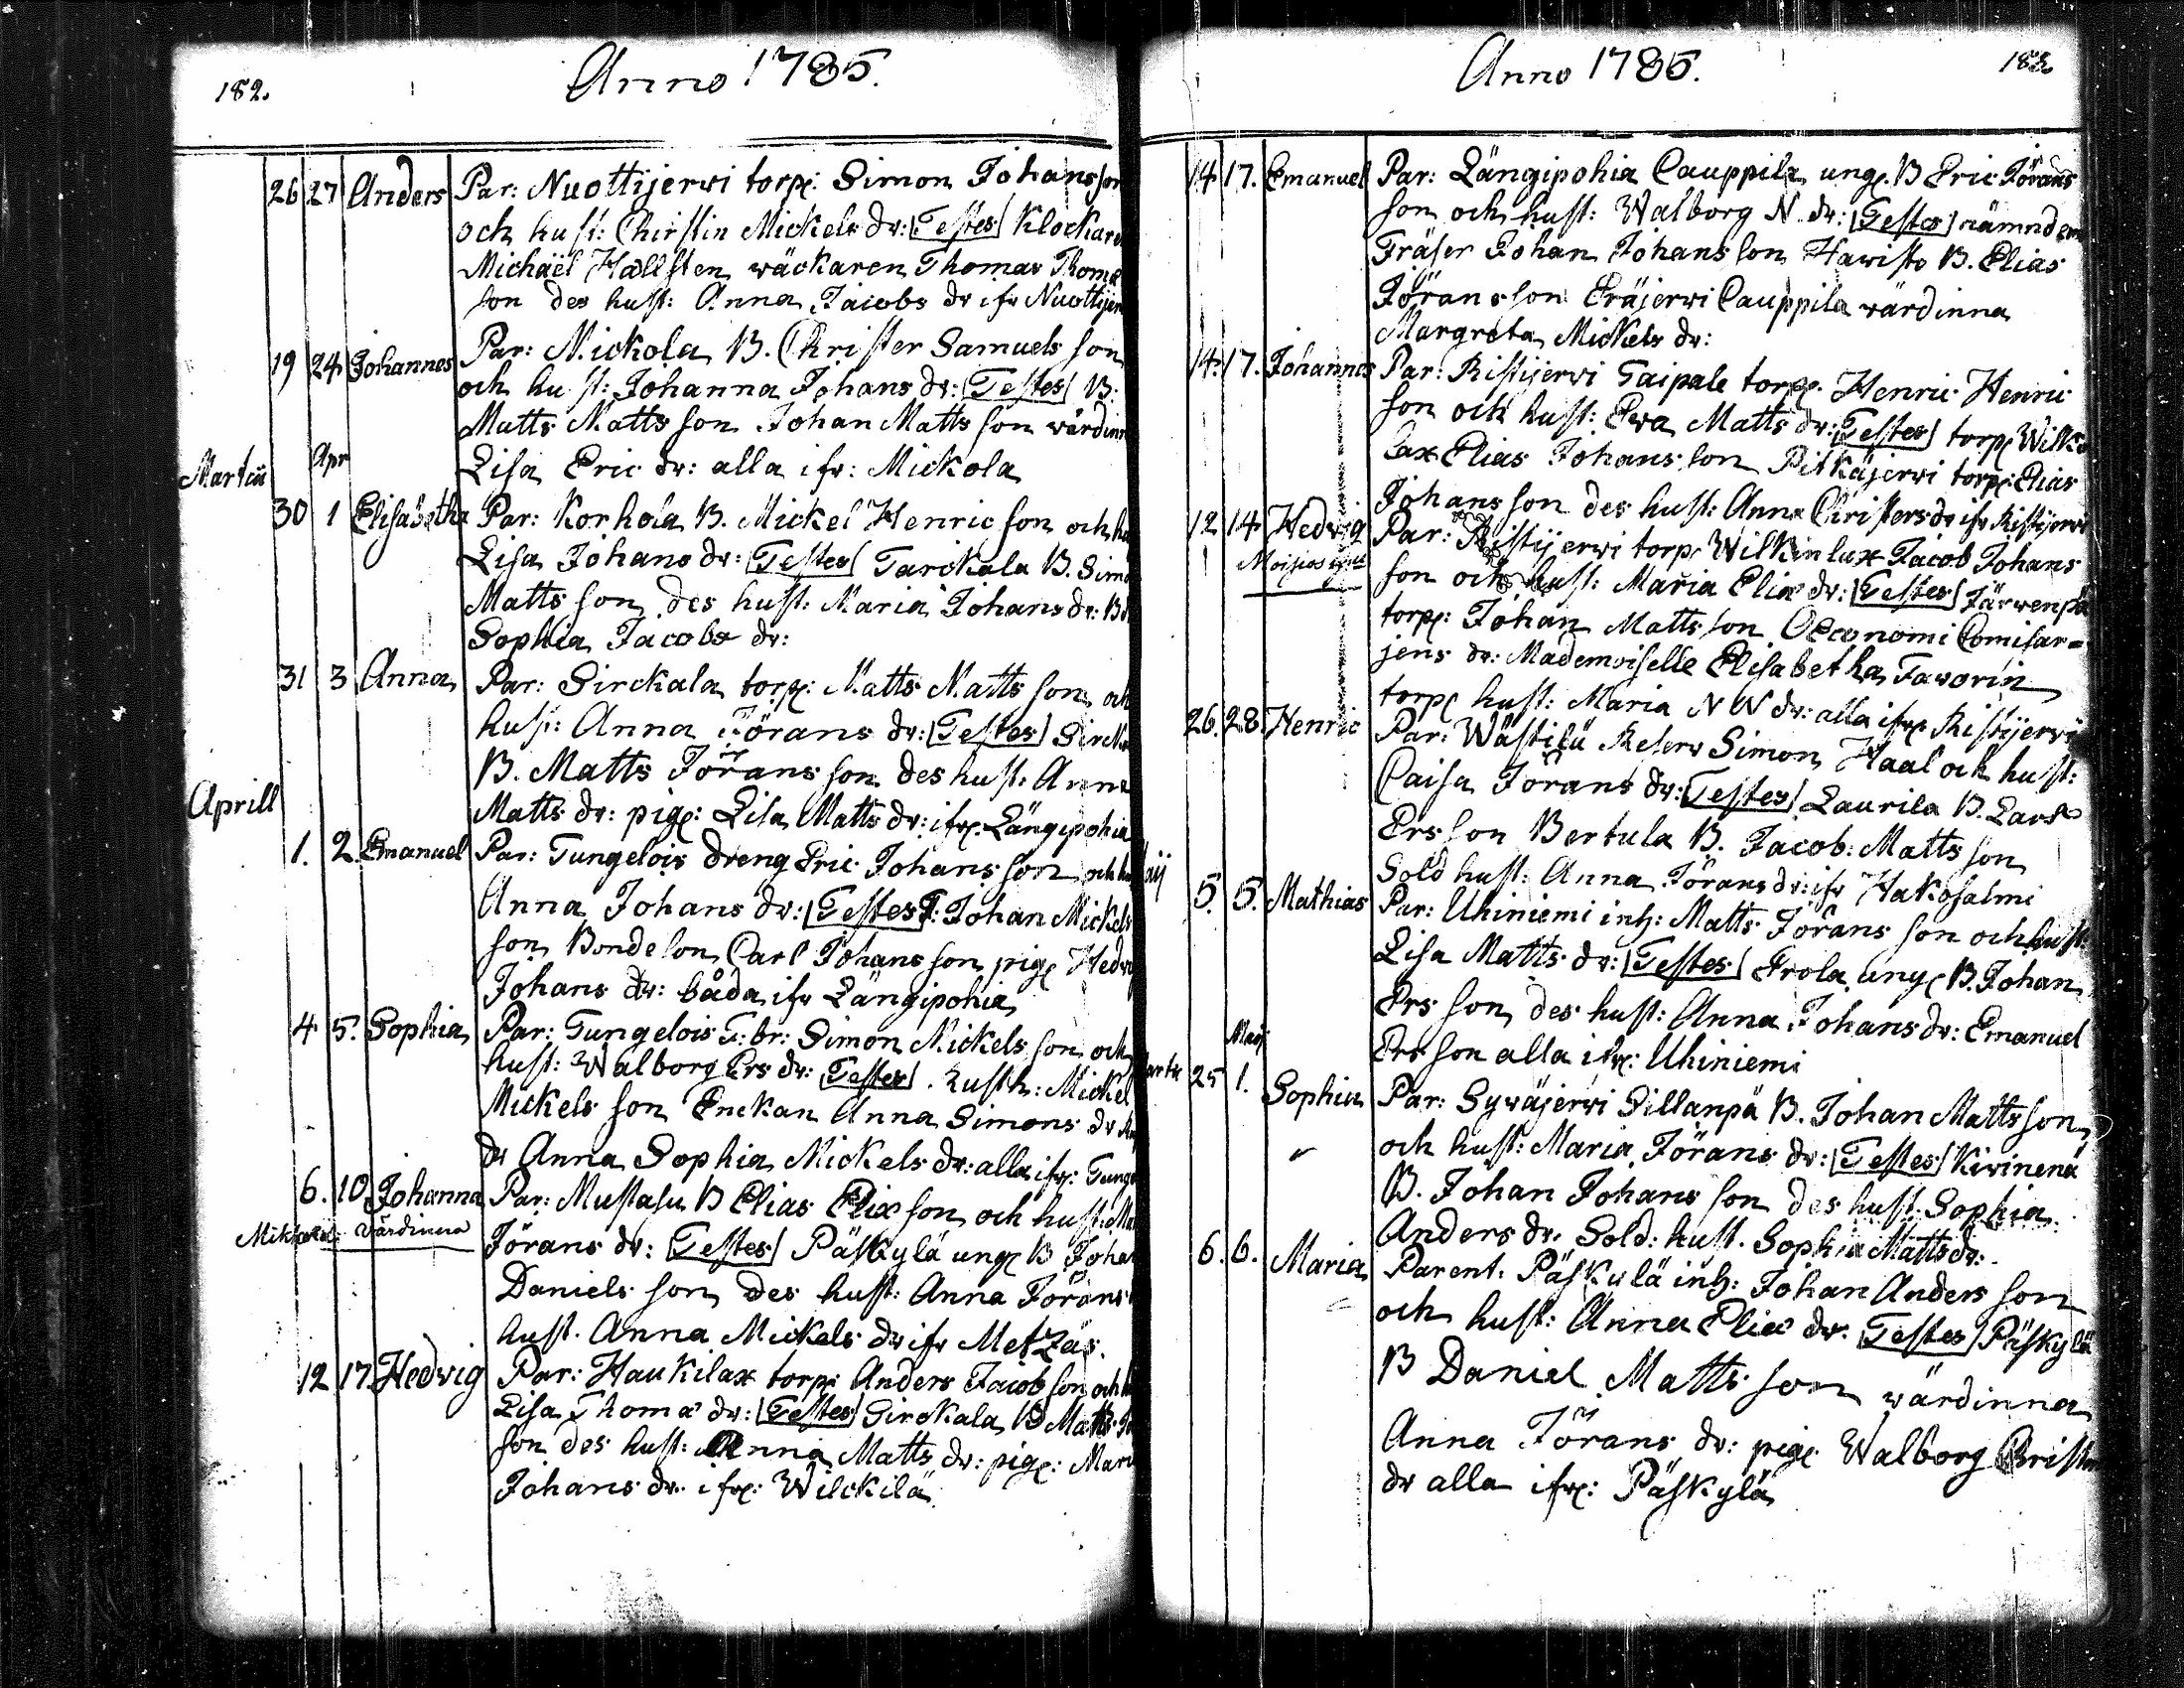 182.
Anno 1785.
26 27 Anders Par: Nuottijerwi torp: Simon Johans son
och hust: Christin Mickels dr: Testes Klockaren
Michaël Hallsten wäckaren Thomas Thomæ
son des hust: Anna Jacobs dr ifr Nuottijer
19 24 Johannes Par: Mickola B. Christer Samuels son
och hust: Johanna Johans dr: Testes B:
Matts Matts son Johan Matts son wärdin
Lisa Eric dr: alla ifr: Mickola
Martii Apr
30 1 Elisabetha Par: Korhola B. Mickel Henric son och hu
Lisa Johans dr: Testes Tarckala B. Simo
Matts son des hust: Maria Johans dr: B
Sophia Jacobs dr:
31 3 Anna Par: Sirckala torp: Matts Matts son och
hust: Anna Jörans dr: Testes Sirck
B. Matts Jörans son des hust: Anna
Matts dr: pig: Lisa Matts dr: ifr: Längipohia
Aprill
1. 2 Emanuel Par: Tungelois dreng Eric Johans son och hu
Anna Johans dr: Testes T: Johan Mickels
son Bonde son Carl Johans son pig Hedw
Johans dr: båda ifr Längipohia
4 5. Sophia Par: Tungelois T: br: Simon Mickels son och
hust: Walborg Ers dr: Testes Rusth: Mickel
Mickels son Enckan Anna Simons dr
dr Anna Sophia Mickels dr: alla ifr: Tunge
6. 10 Johanna Par: Mustasu B Elias Eliæ son och hust: Ma
wärdinna Jörans dr: Testes Päskylä ung B Johan
Daniels son des hust: Anna Jörans
hust. Anna Mickels dr ifr Metzäs.
12 17. Hedwig Par: Haukilax torp: Anders Jacob son och h
Lisa Thomæ dr: Testes Sirckala B Matts
son des hust: Anna Matts dr: pig: Mari
Johans dr: ifr: Wilckilä
Anno 1785.
183.
14 17. Emanuel Par: Längipohia Cauppila ung. B Eric Jörans
son och hust: Walborg N dr: Testes nämndem
Fräser Johan Johans son Hawisto B. Elias
Jörans son Eräjerwi Cauppila wärdinna
Margreta Mickels dr:
14. 17. Johannes Par: Ristijerwi Taipale torp. Henric Henric
son och hust: Ewa Matts dr: Testes torp Wilki
lax Elias Johans son Pitkäjerwi torp: Elias
Johans son des hust: Anna Christers dr ifr Ristijerwi
12 14 Hedwig Par: Ristijerwi torp Wilkinlax Jacob Johans
son och hust: Maria Eliæ dr: Testes Järwenpä
torp: Johan Matts son Oeconomi Comisar=
jens dr: Mademoiselle Elisabetha Faworin
torp hust: Maria N N dr: alla ifr Ristijerwi
26. 28. Henric Par: Wästilä Reserv Simon Haal och hust:
Caisa Jörans dr: Testes Laurila B. Lars
Ers son Bertula B. Jacob Matts son
Sold hust: Anna Jörans dr: ifr Hakosalmi
5. 5. Mathias Par: Uhiniemi inh: Matts Jörans son och hust:
Lisa Matts dr: Testes Frola ung B. Johan
Ers son des hust: Anna Johans dr: Emanuel
Ers son alla ifr: Uhiniemi
Maij
25 1. Sophia Par: Sywäjerwi Sillanpä B. Johan Matts son
och hust: Maria Jörans dr: Testes Kivinenä
B. Johan Johans son des hust: Sophia
Anders dr. Sold: hust. Sophia Matts dr:
6. 6. Maria Parent: Päskylä inh: Johan Anders son
och hust: Anna Eliæ dr: Testes Päskylä
B Daniel Matts son wärdinna
Anna Jörans dr: pig: Walborg
dr alla ifr: Päskylä